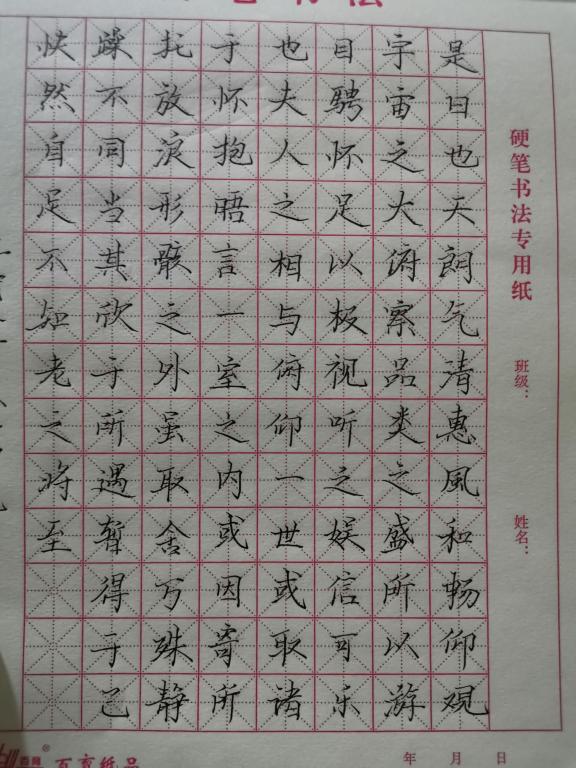 是日也天朗气清惠風和畅仰观
宇宙之大俯察品类之盛所以游
目骋怀足以极视听之娱信可乐
也夫人之相与俯仰一世或取诸
于怀抱晤言一室之内或因寄所
托放浪形骸之外虽取舍万殊静
躁不同当其欣于所遇暂得于己
快然自足不知老之将至
硬笔书法专用纸
班级：
姓名：
年 月 日